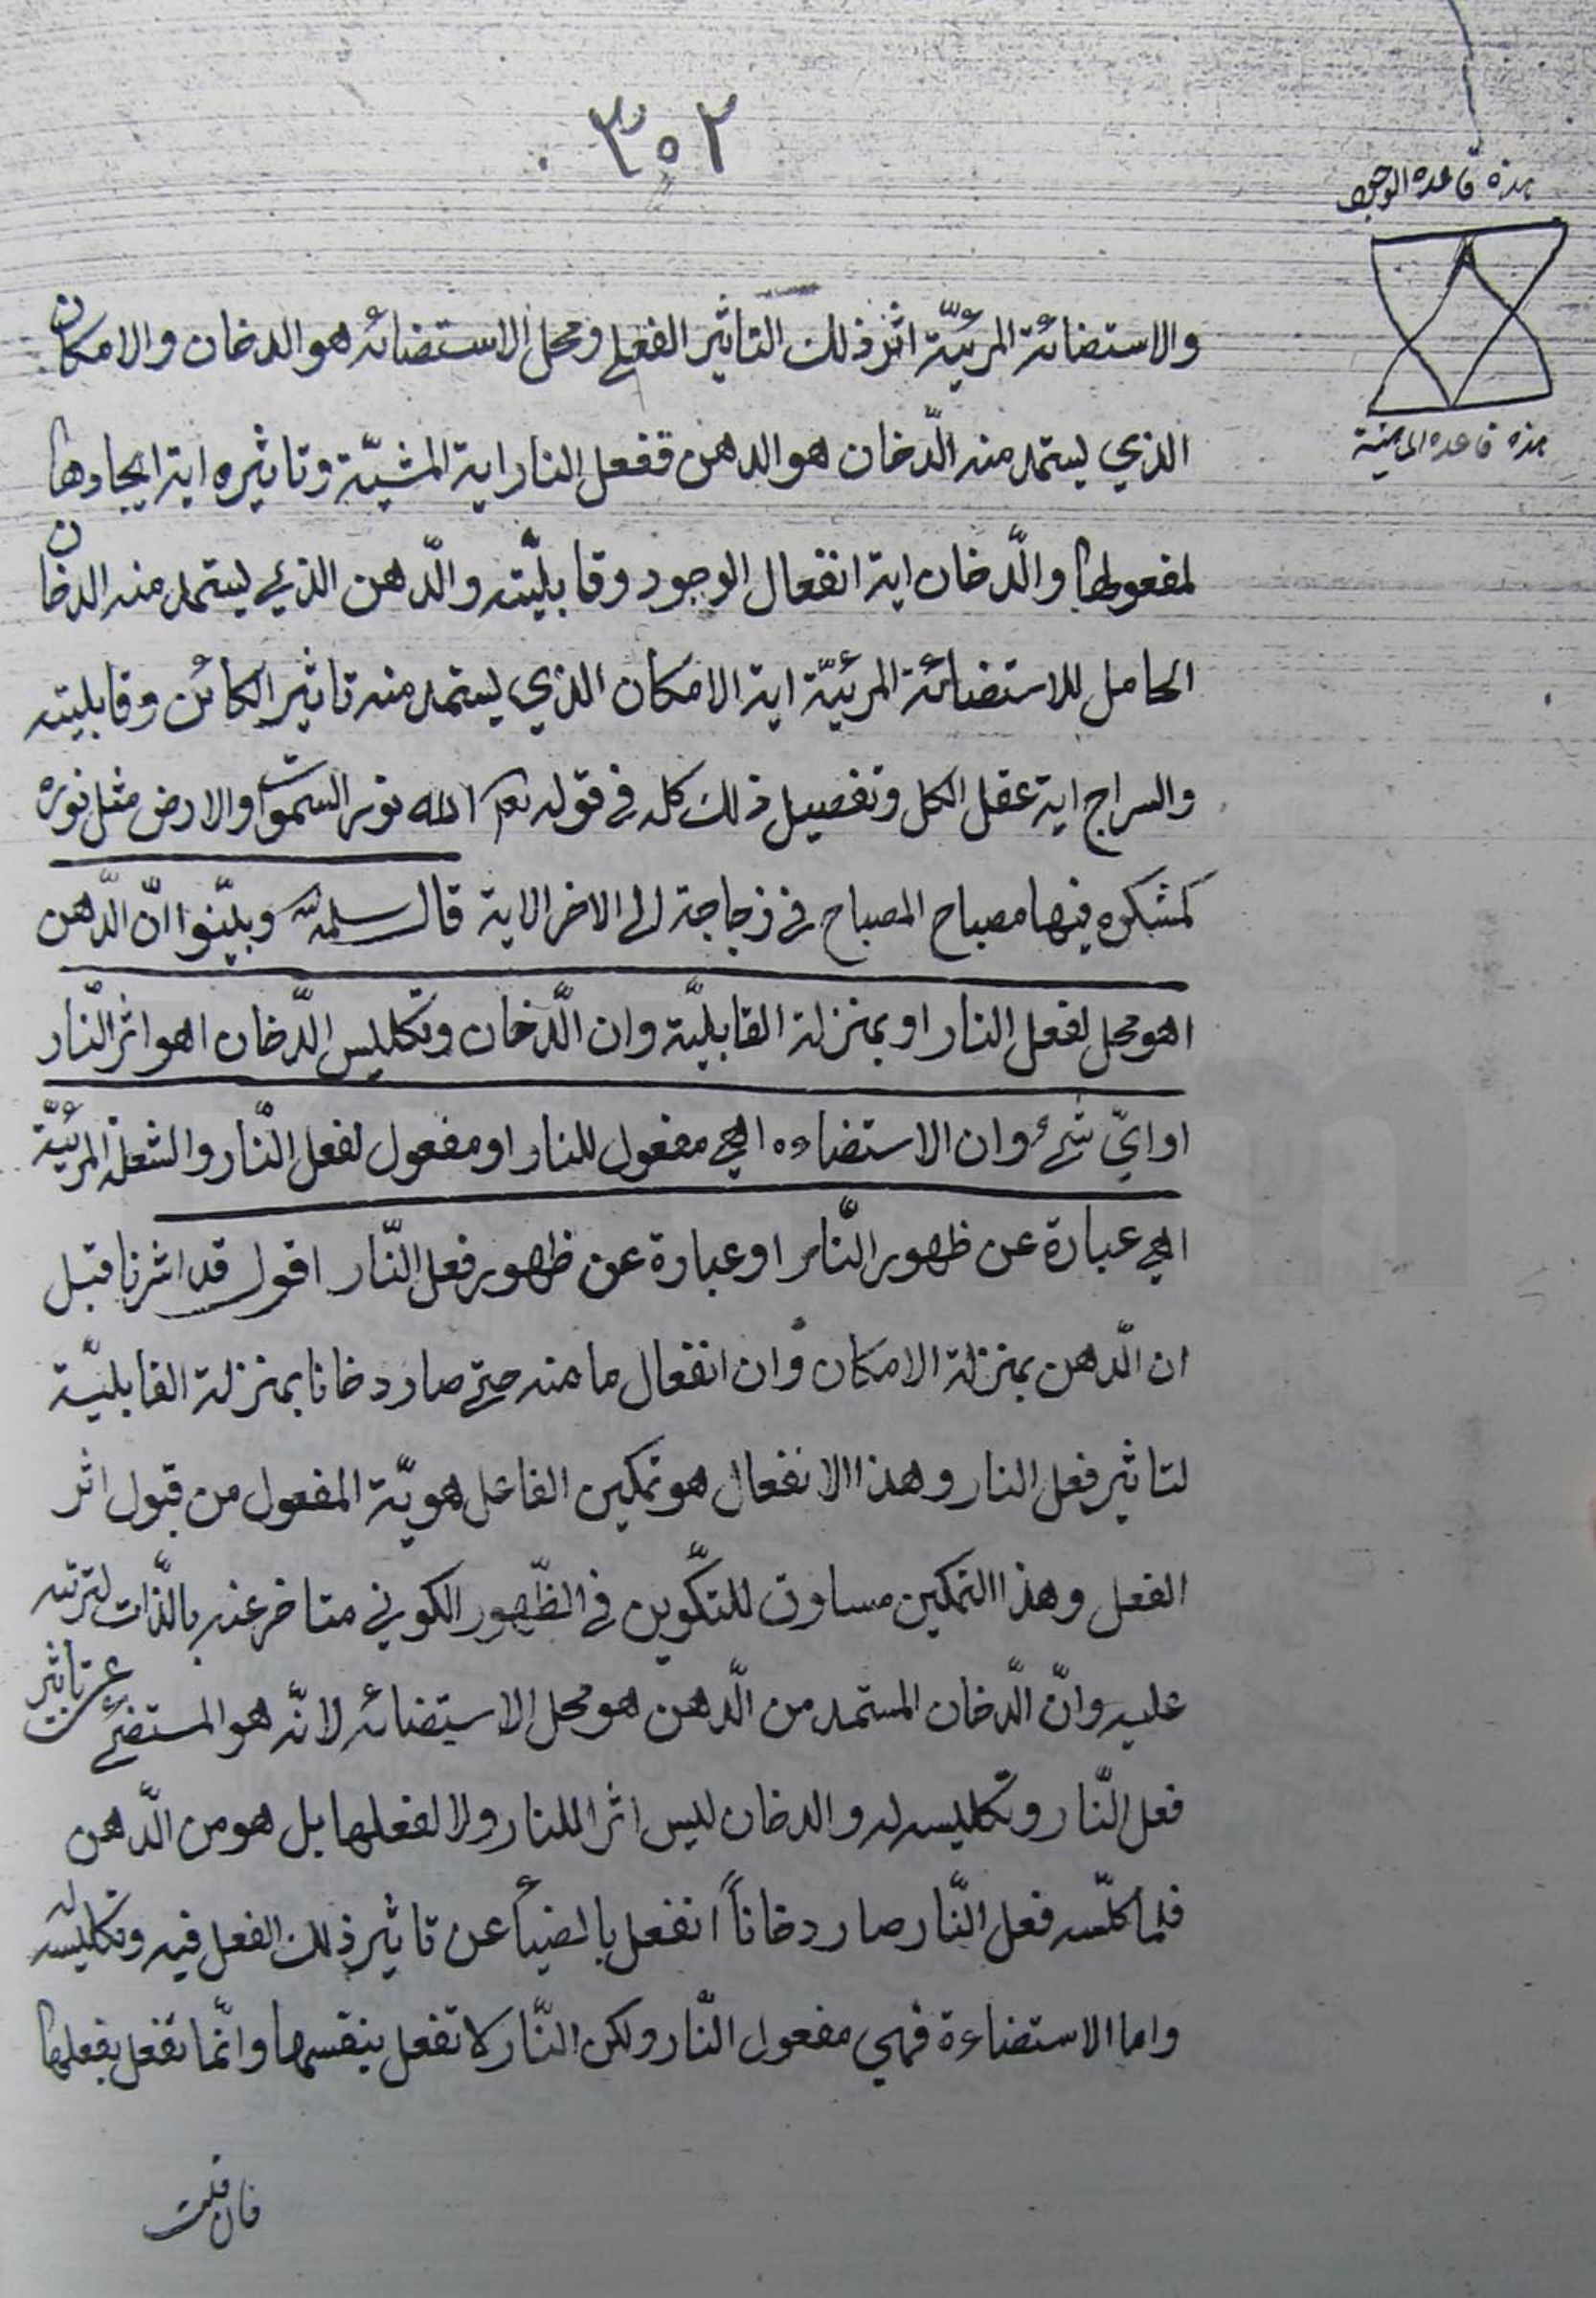 ٣٥٢
هذه قاعده الوجود
هذه قاعده
والاستضائة المرئيّة اثر ذلك التاثير الفعلي ومحل الاستضائه هو الدخان والامكان
الذي يستمد منه الدّخان هو الدهن ففعل النار اية المشيّة وتاثيره اية ايجادها
لمفعولها والدّخان اية انفعال الوجود وقابليّته والدّهن الذي يستمد منه الدخان
الحامل للاستضائة المرئيّة اية الامكان الذي يستمد منه تاثير الكائن وقابليته
والسراج اية عقل الكل وتفصيل ذلك كله في قوله تعم الله نور السموات والارض مثل نوره
كمشكوه فيها مصباح المصباح في زجاجة الى الاخر الاية قال سلمه الله وبيّنوا انّ الدّهن
اهو محل لفعل النار او بمنزلة القابليّة وان الدّخان وتكليس الدّخان اهو اثر النّار
او ايّ شئ وان الاستضاءه اهي مفعول للنار او مفعول لفعل النّار والشعلة المرئيّة
اهي عبارة عن ظهور النّار او عبارة عن ظهور فعل النّار اقول قد اشرنا قبل
ان الدّهن بمنزلة الامكان وان انفعال ما منه حتى صار دخانا بمنزلة القابليّة
لتاثير فعل النار وهذا الانفعال هو تمكين الفاعل هويّة المفعول من قبول اثر
الفعل وهذا التمكين مساوق للتكّوين في الظّهور الكوني متاخر عنه بالذّات لترتبه
عليه وانّ الدّخان المستمد من الدّهن هو محل الاستضائه لانّه هو المستضئ عن تاثير
فعل النّار وتكليسه له والدخان ليس اثرا للنار ولا لفعلها بل هو من الدّهن
فلما كلّسه فعل النّار صار دخاناً انفعل بالضيأ عن تاثير ذلك الفعل فيه وتكليسه له
واما الاستضاءة فهي مفعول النّار ولكن النّار لا تفعل بنفسها وانّما تفعل بفعلها
فان قلت